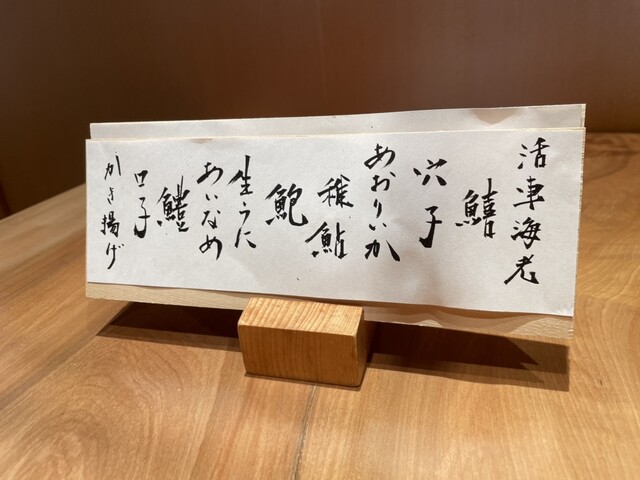 活車海老
鱚
穴子
あおりいか
稚鮎
鮑
生うに
あいなめ
鱧
口子
かき揚げ